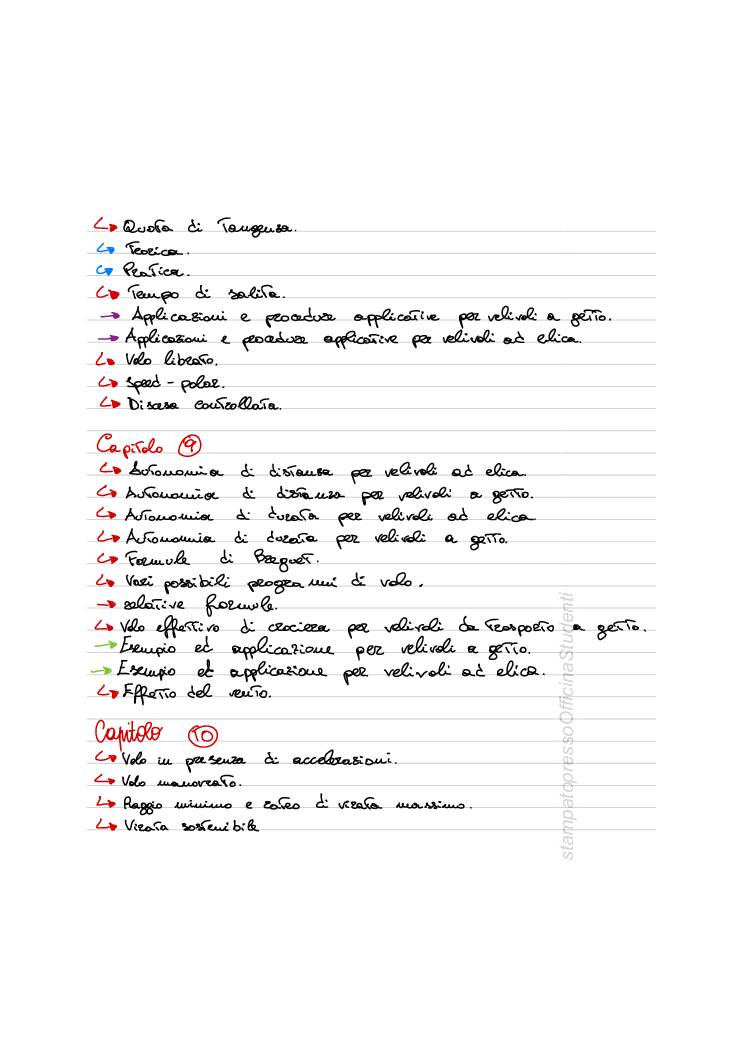 ↳ Quota di Tangenza.
↳ Teorica.
↳ Pratica.
↳ Tempo di salita.
→ Applicazioni e procedure applicative per velivoli a getto.
→ Applicazioni e procedure applicative per velivoli ad elica.
↳ Volo librato.
↳ Speed-polar.
↳ Discesa controllata.
Capitolo 9
↳ Autonomia di distanza per velivoli ad elica.
↳ Autonomia di distanza per velivoli a getto.
↳ Autonomia di durata per velivoli ad elica
↳ Autonomia di durata per velivoli a getto.
↳ Formule di Breguet.
↳ Vari possibili programmi di volo.
→ relative formule.
↳ Volo effettivo di crociera per velivoli da Trasporto a getto.
→ Esempio ed applicazione per velivoli a getto.
→ Esempio ed applicazione per velivoli ad elica.
↳ Effetto del vento.
Capitolo 10
↳ Volo in presenza di accelerazioni.
↳ Volo manovrato.
↳ Raggio minimo e rateo di virata massimo.
↳ Virata sostenibile
stampatopressoOfficinaStudenti